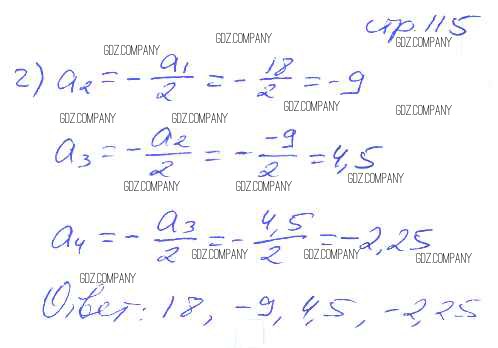 стр. 115
GDZ.COMPANY GDZ.COMPANY GDZ.COMPANY
г) a₂ = -a₁/2 = -18/2 = -9
GDZ.COMPANY GDZ.COMPANY GDZ.COMPANY GDZ.COMPANY
a₃ = -a₂/2 = -(-9)/2 = 4,5
GDZ.COMPANY GDZ.COMPANY GDZ.COMPANY
a₄ = -a₃/2 = -4,5/2 = -2,25
GDZ.COMPANY GDZ.COMPANY GDZ.COMPANY
GDZ.COMPANY
Ответ: 18, -9, 4,5, -2,25